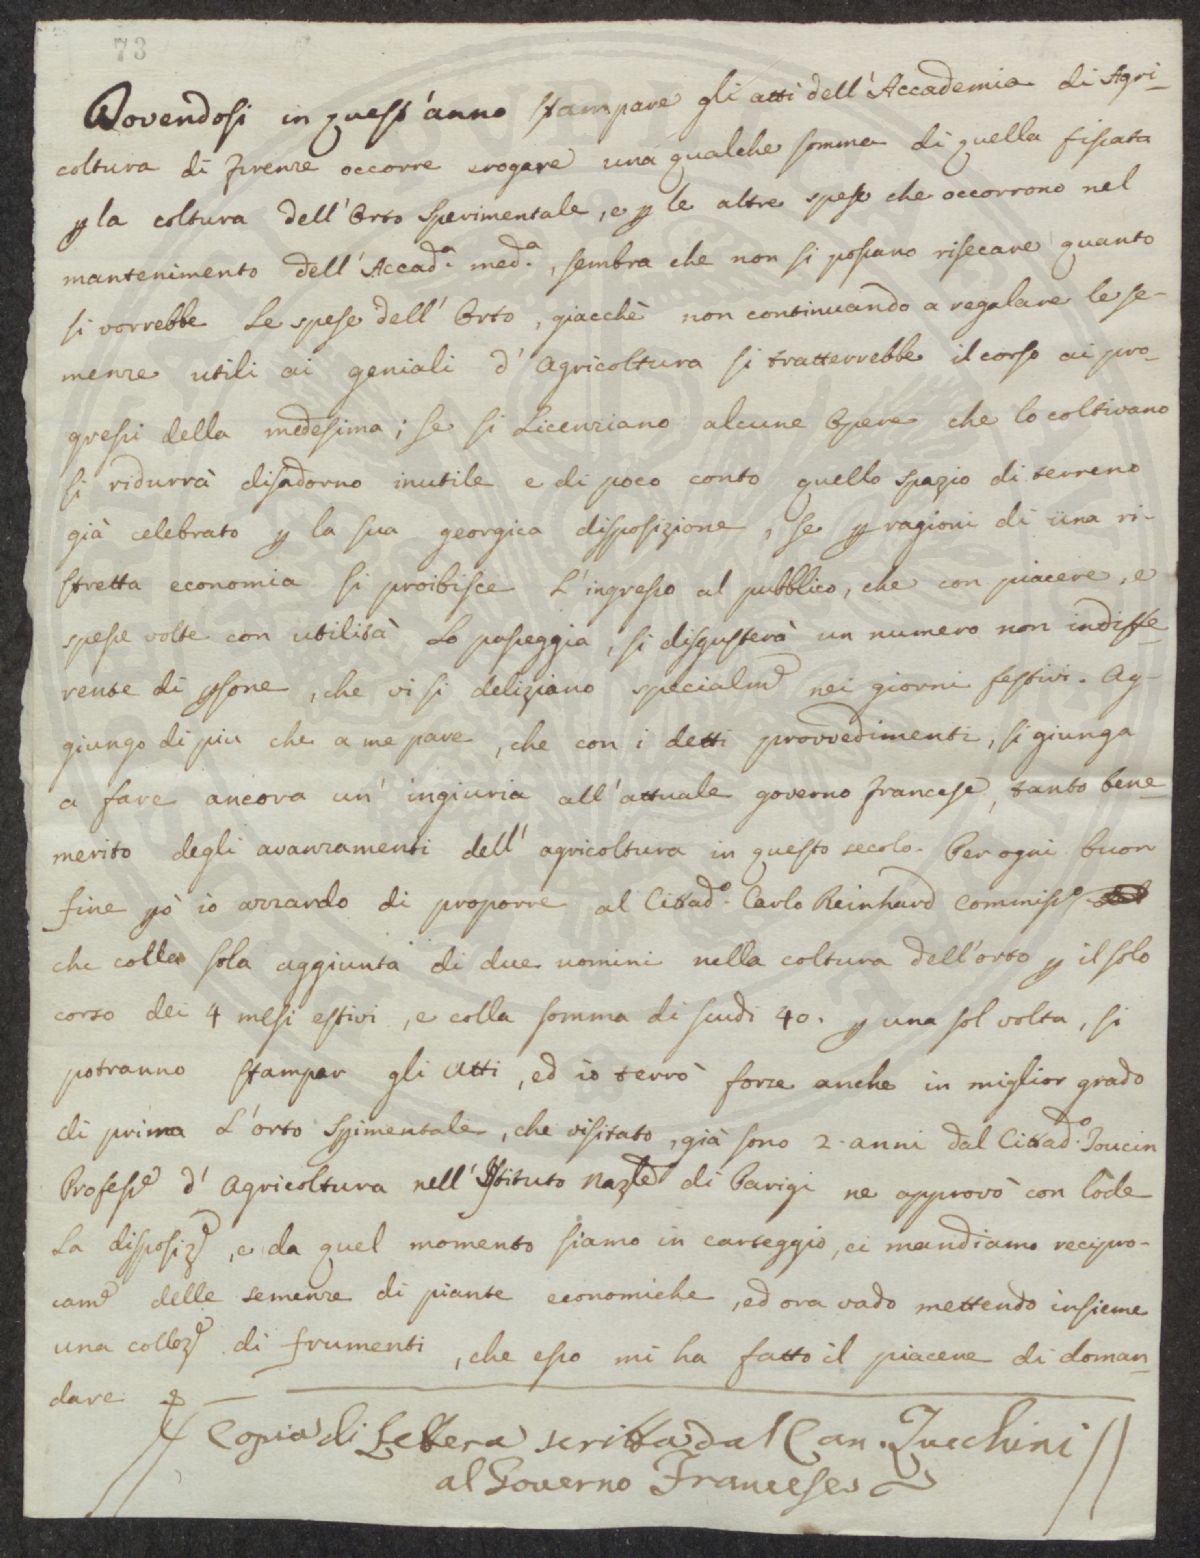 73
Dovendosi in quest'anno stampare gli atti dell'Accademia di Agri-
coltura di Firenze occorre erogare una qualche somma di quella fissata
p la coltura dell'Orto Sperimentale, e p le altre spese che occorrono nel
mantenimento dell'Accad.a med.a, sembra che non si possano risecare quanto
si vorrebbe Le spese dell'Orto, giacchè non continuando a regalare le se-
menze utili ai geniali d'Agricoltura si tratterrebbe il corso ai pro-
gressi della medesima; se si Licenziano alcune Opere che lo coltivano
si ridurrà disadorno inutile e di poco conto quello spazio di terreno
già celebrato p la sua georgica disposizione, se p ragioni di una ri-
stretta economia si proibisce L'ingresso al pubblico, che con piacere, e
spesse volte con utilità Lo passeggia, si disgusterà un numero non indiffe-
rente di psone, che vi si deliziano specialme nei giorni festivi. Ag-
giungo di piu che a me pare, che con i detti provvedimenti, si giunga
a fare ancora un'ingiuria all'attuale governo francese, tanto bene-
merito degli avanzamenti dell'agricoltura in questo secolo. Per ogni buon
fine pò io azzardo di proporre al Cittad.o Carlo Reinhard Commiss.o
che colla sola aggiunta di due uomini nella coltura dell'orto p il solo
corso dei 4 mesi estivi, e colla somma di scudi 40. p una sol volta, si
potranno stampar gli Atti, ed io terrò forze anche in miglior grado
di prima L'orto Spimentale, che visitato, già sono 2. anni dal Cittad.o Toucin
Profess.e d'Agricoltura nell'Istituto Nazle di Parigi ne approvò con lode
La disposize, e da quel momento siamo in carteggio, ci mandiamo recipro-
came delle semenze di piante economiche, ed ora vado mettendo insieme
una colleze di frumenti, che esso mi ha fatto il piacere di doman-
dare
Copia di Lettera scritta dal Can. Zucchini
al Governo Francese